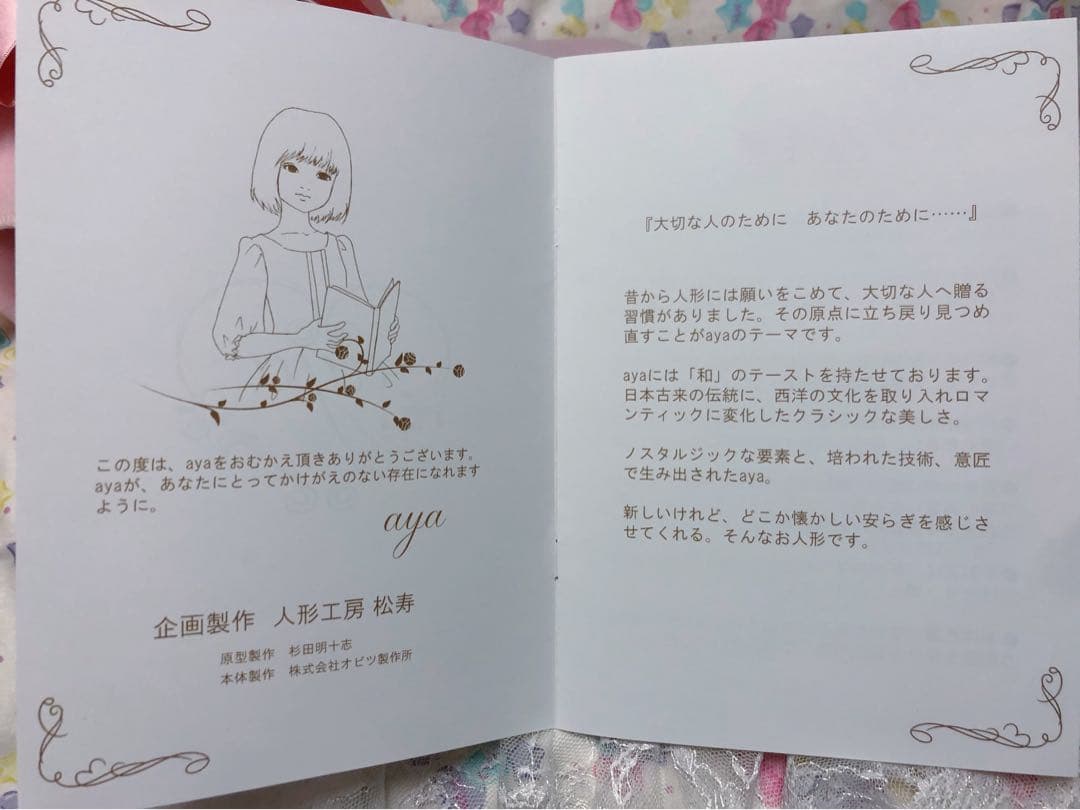 この度は、ayaをおむかえ頂きありがとうございます。
ayaが、あなたにとってかけがえのない存在になれます
ように。
aya
企画製作　人形工房 松寿
原型製作　杉田明十志
本体製作　株式会社オビツ製作所
『大切な人のために　あなたのために……』
昔から人形には願いをこめて、大切な人へ贈る
習慣がありました。その原点に立ち戻り見つめ
直すことがayaのテーマです。
ayaには「和」のテーストを持たせております。
日本古来の伝統に、西洋の文化を取り入れロマ
ンティックに変化したクラシックな美しさ。
ノスタルジックな要素と、培われた技術、意匠
で生み出されたaya。
新しいけれど、どこか懐かしい安らぎを感じさ
せてくれる。そんなお人形です。